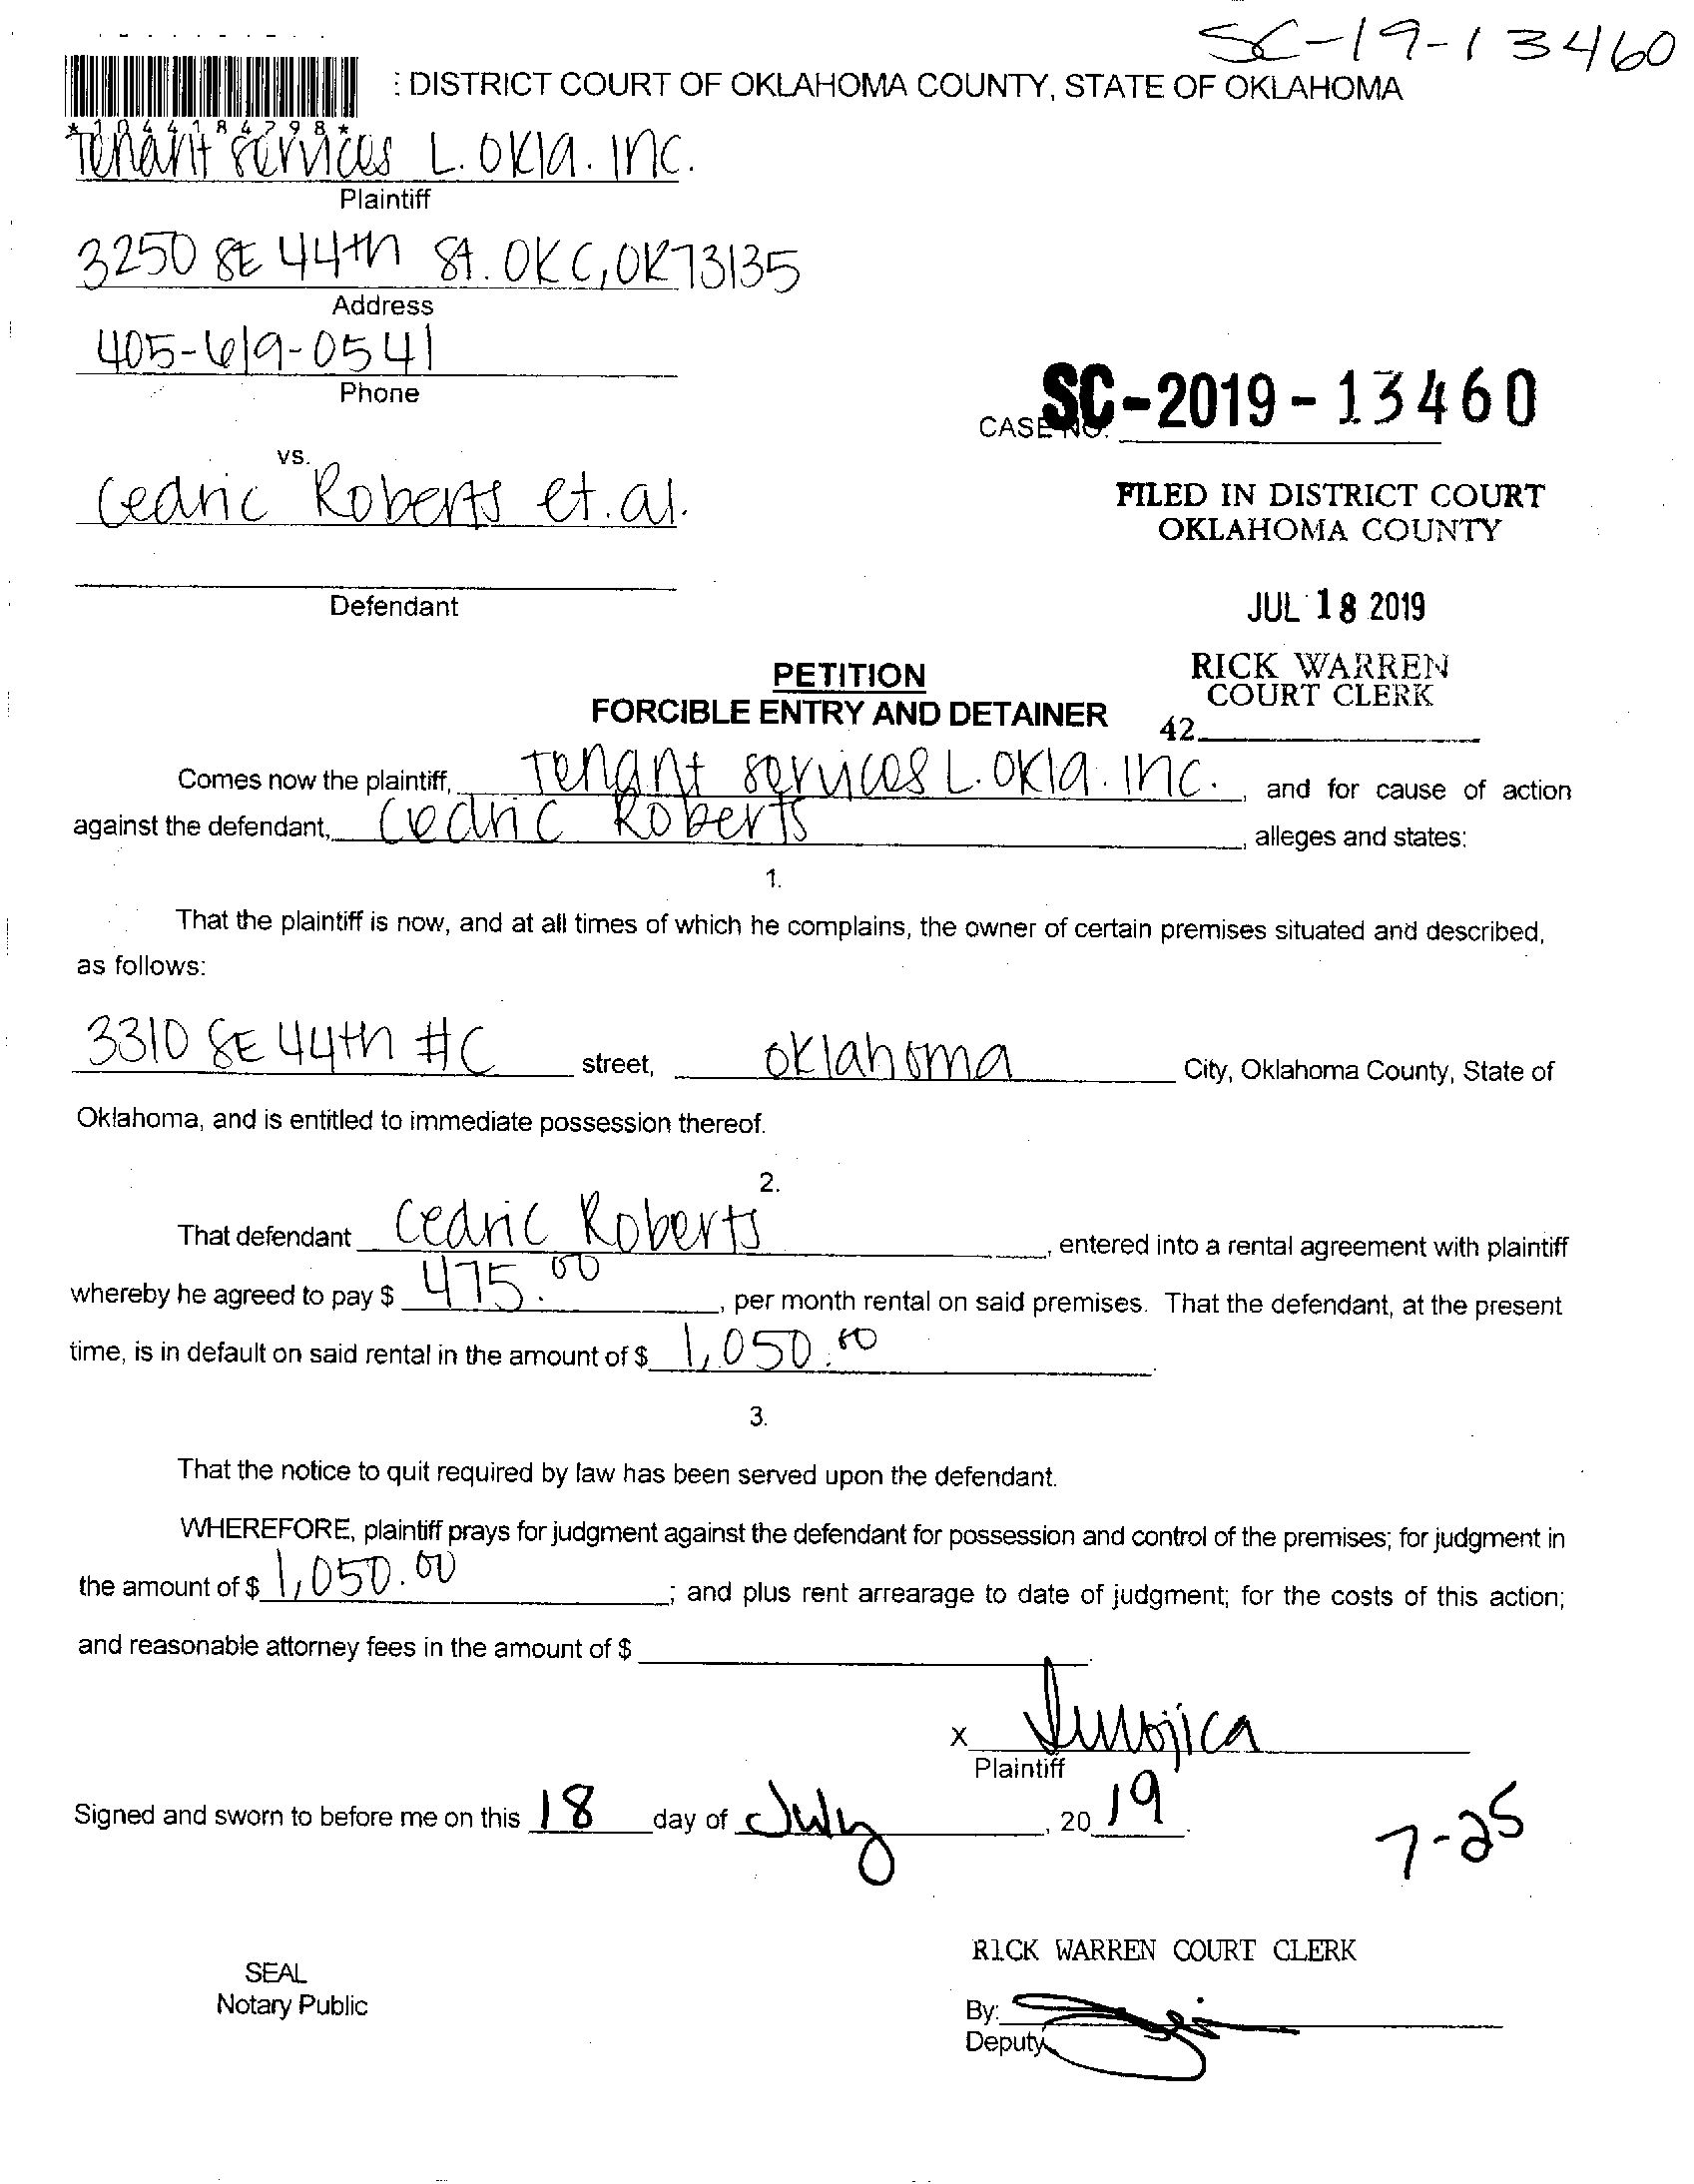 SC-19-13460
: DISTRICT COURT OF OKLAHOMA COUNTY, STATE OF OKLAHOMA
Tenant services L. Okla. Inc.
Plaintiff
3250 SE 44th St. OKC, OK 73135
Address
405-619-0541
Phone
CASE NO. SC-2019-13460
vs.
Cedric Roberts et. al.
FILED IN DISTRICT COURT
OKLAHOMA COUNTY
Defendant
JUL 18 2019
RICK WARREN
COURT CLERK
42
PETITION
FORCIBLE ENTRY AND DETAINER
Comes now the plaintiff, Tenant services L. Okla. Inc., and for cause of action
against the defendant, Cedric Roberts, alleges and states:
1.
That the plaintiff is now, and at all times of which he complains, the owner of certain premises situated and described,
as follows:
3310 SE 44th #C street, Oklahoma City, Oklahoma County, State of
Oklahoma, and is entitled to immediate possession thereof.
2.
That defendant Cedric Roberts, entered into a rental agreement with plaintiff
whereby he agreed to pay $ 475.00, per month rental on said premises. That the defendant, at the present
time, is in default on said rental in the amount of $ 1,050.00.
3.
That the notice to quit required by law has been served upon the defendant.
WHEREFORE, plaintiff prays for judgment against the defendant for possession and control of the premises; for judgment in
the amount of $ 1,050.00; and plus rent arrearage to date of judgment; for the costs of this action;
and reasonable attorney fees in the amount of $
X
Plaintiff
Signed and sworn to before me on this 18 day of July, 2019.
7-25
RICK WARREN COURT CLERK
SEAL
Notary Public
By:
Deputy